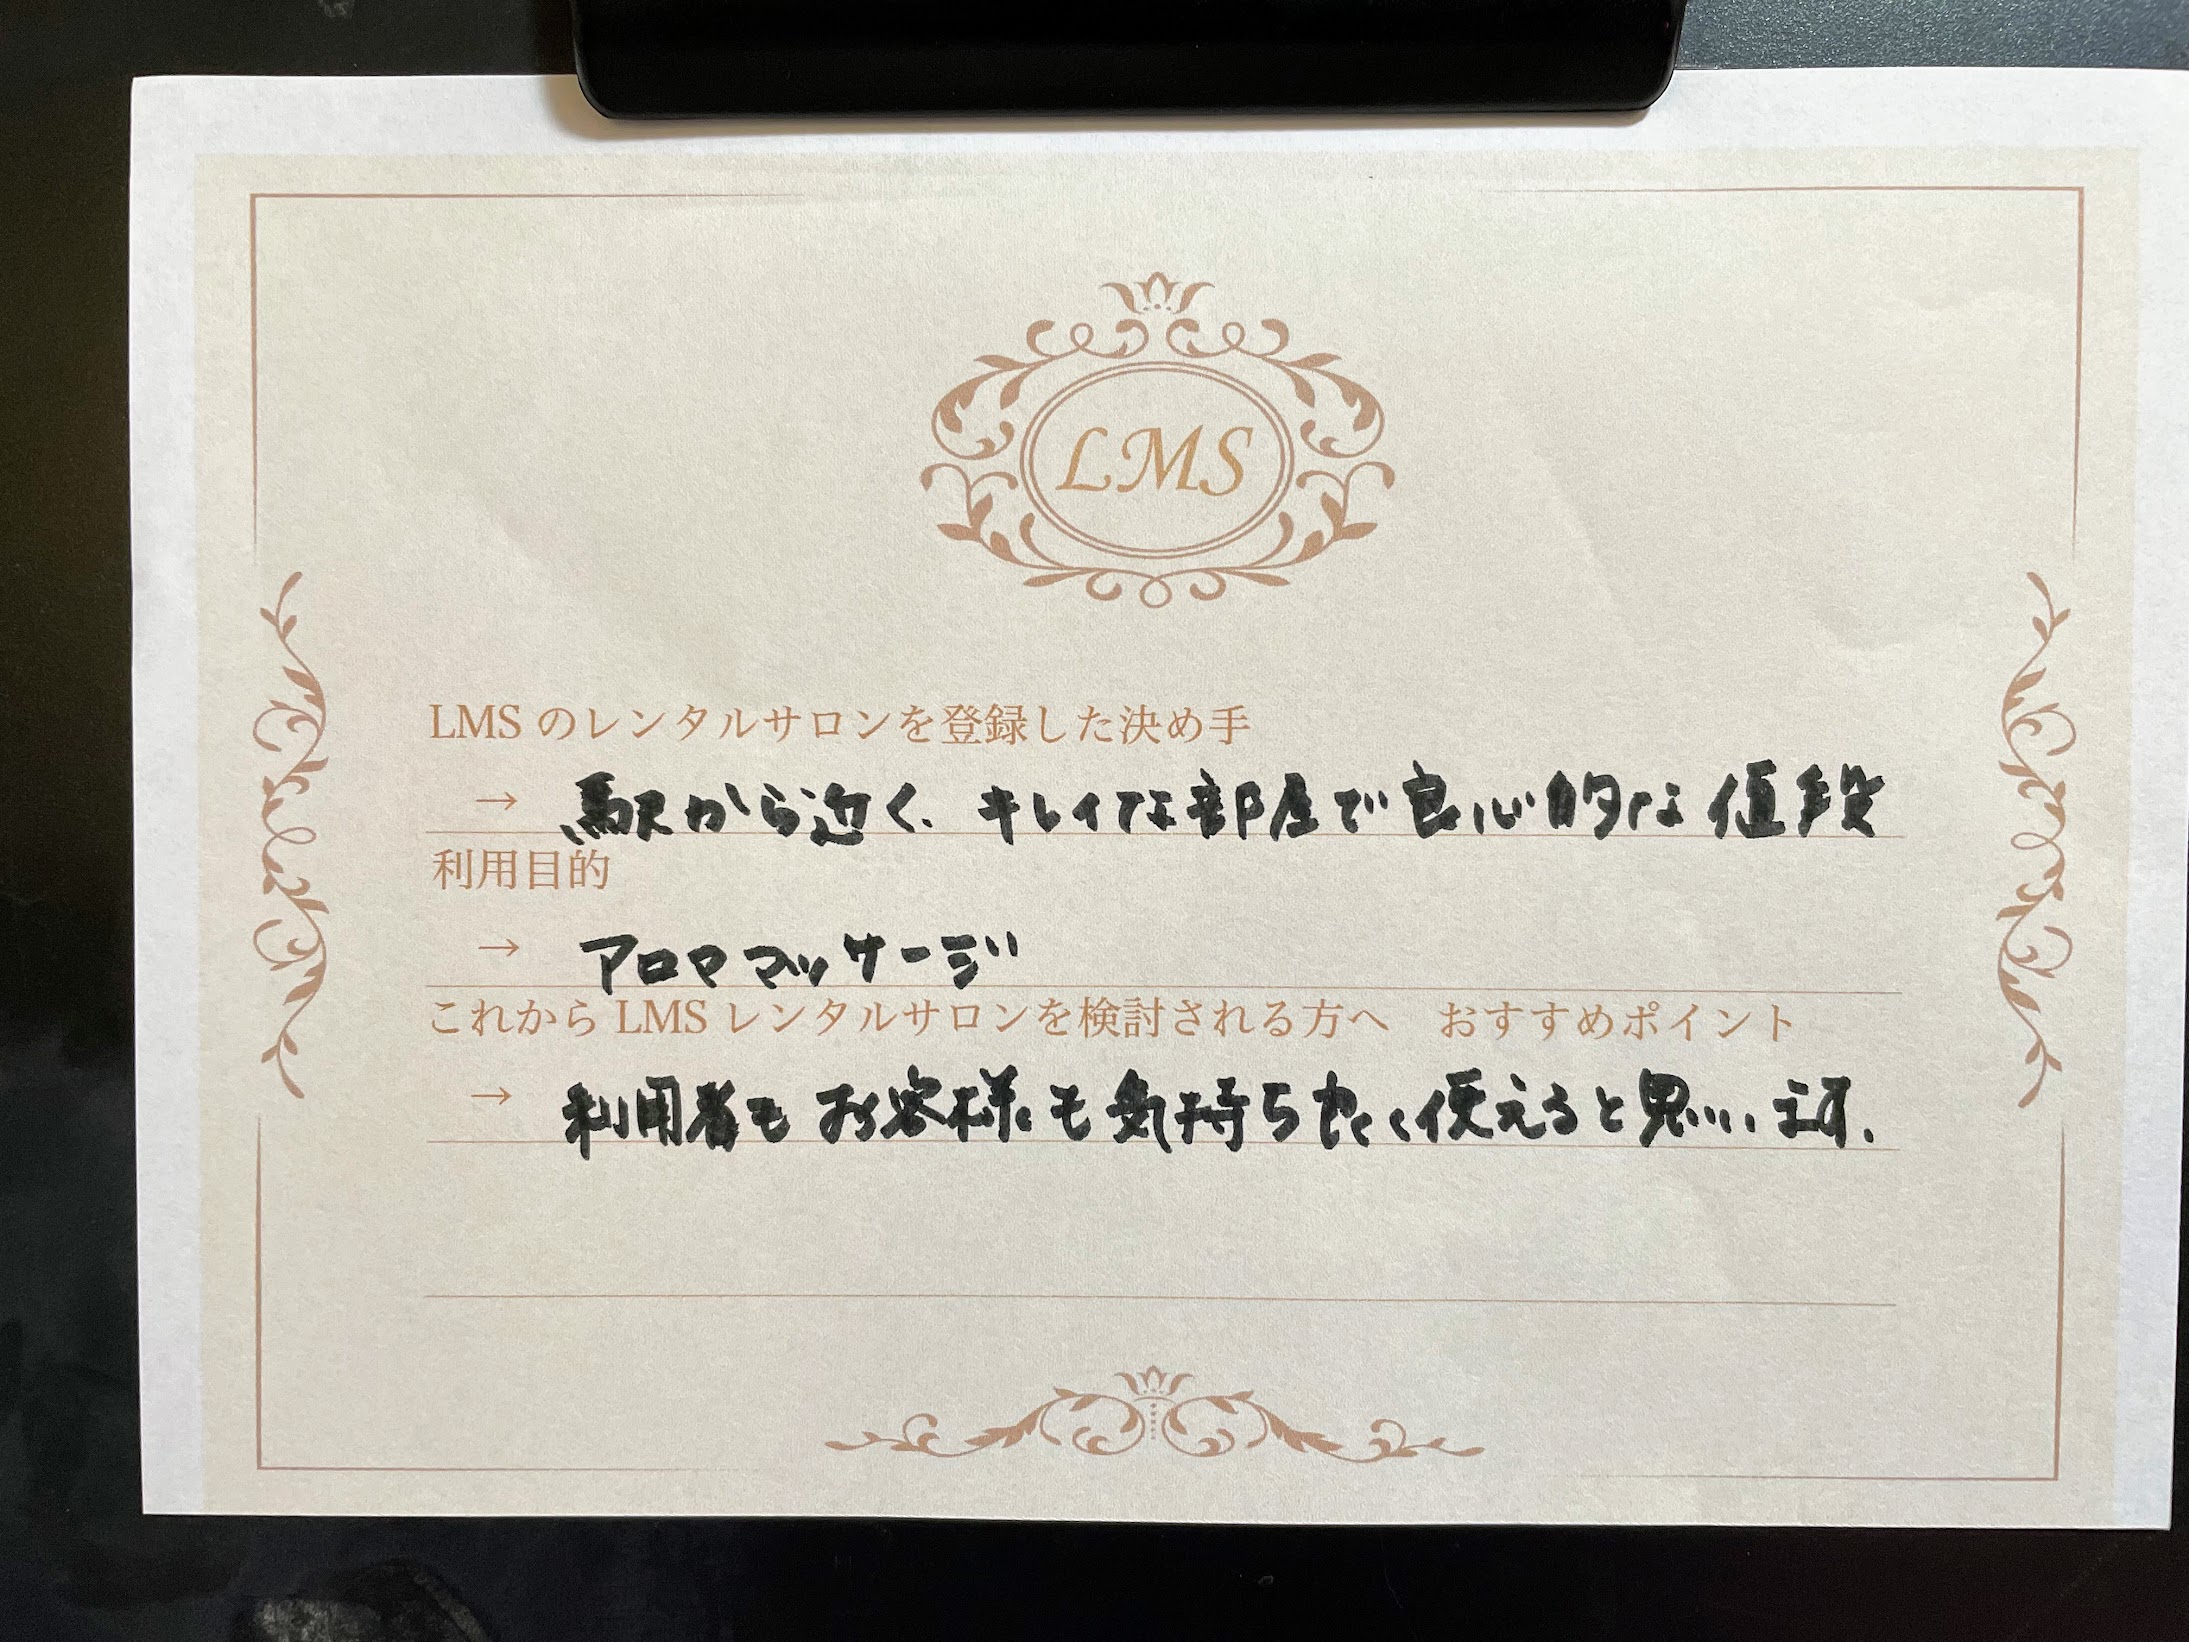 LMS
LMSのレンタルサロンを登録した決め手
→ 駅から近く、キレイな部屋で良心的な値段
利用目的
→ アロママッサージ
これからLMSレンタルサロンを検討される方へ　おすすめポイント
→ 利用者もお客様も気持ち良く使えると思います。